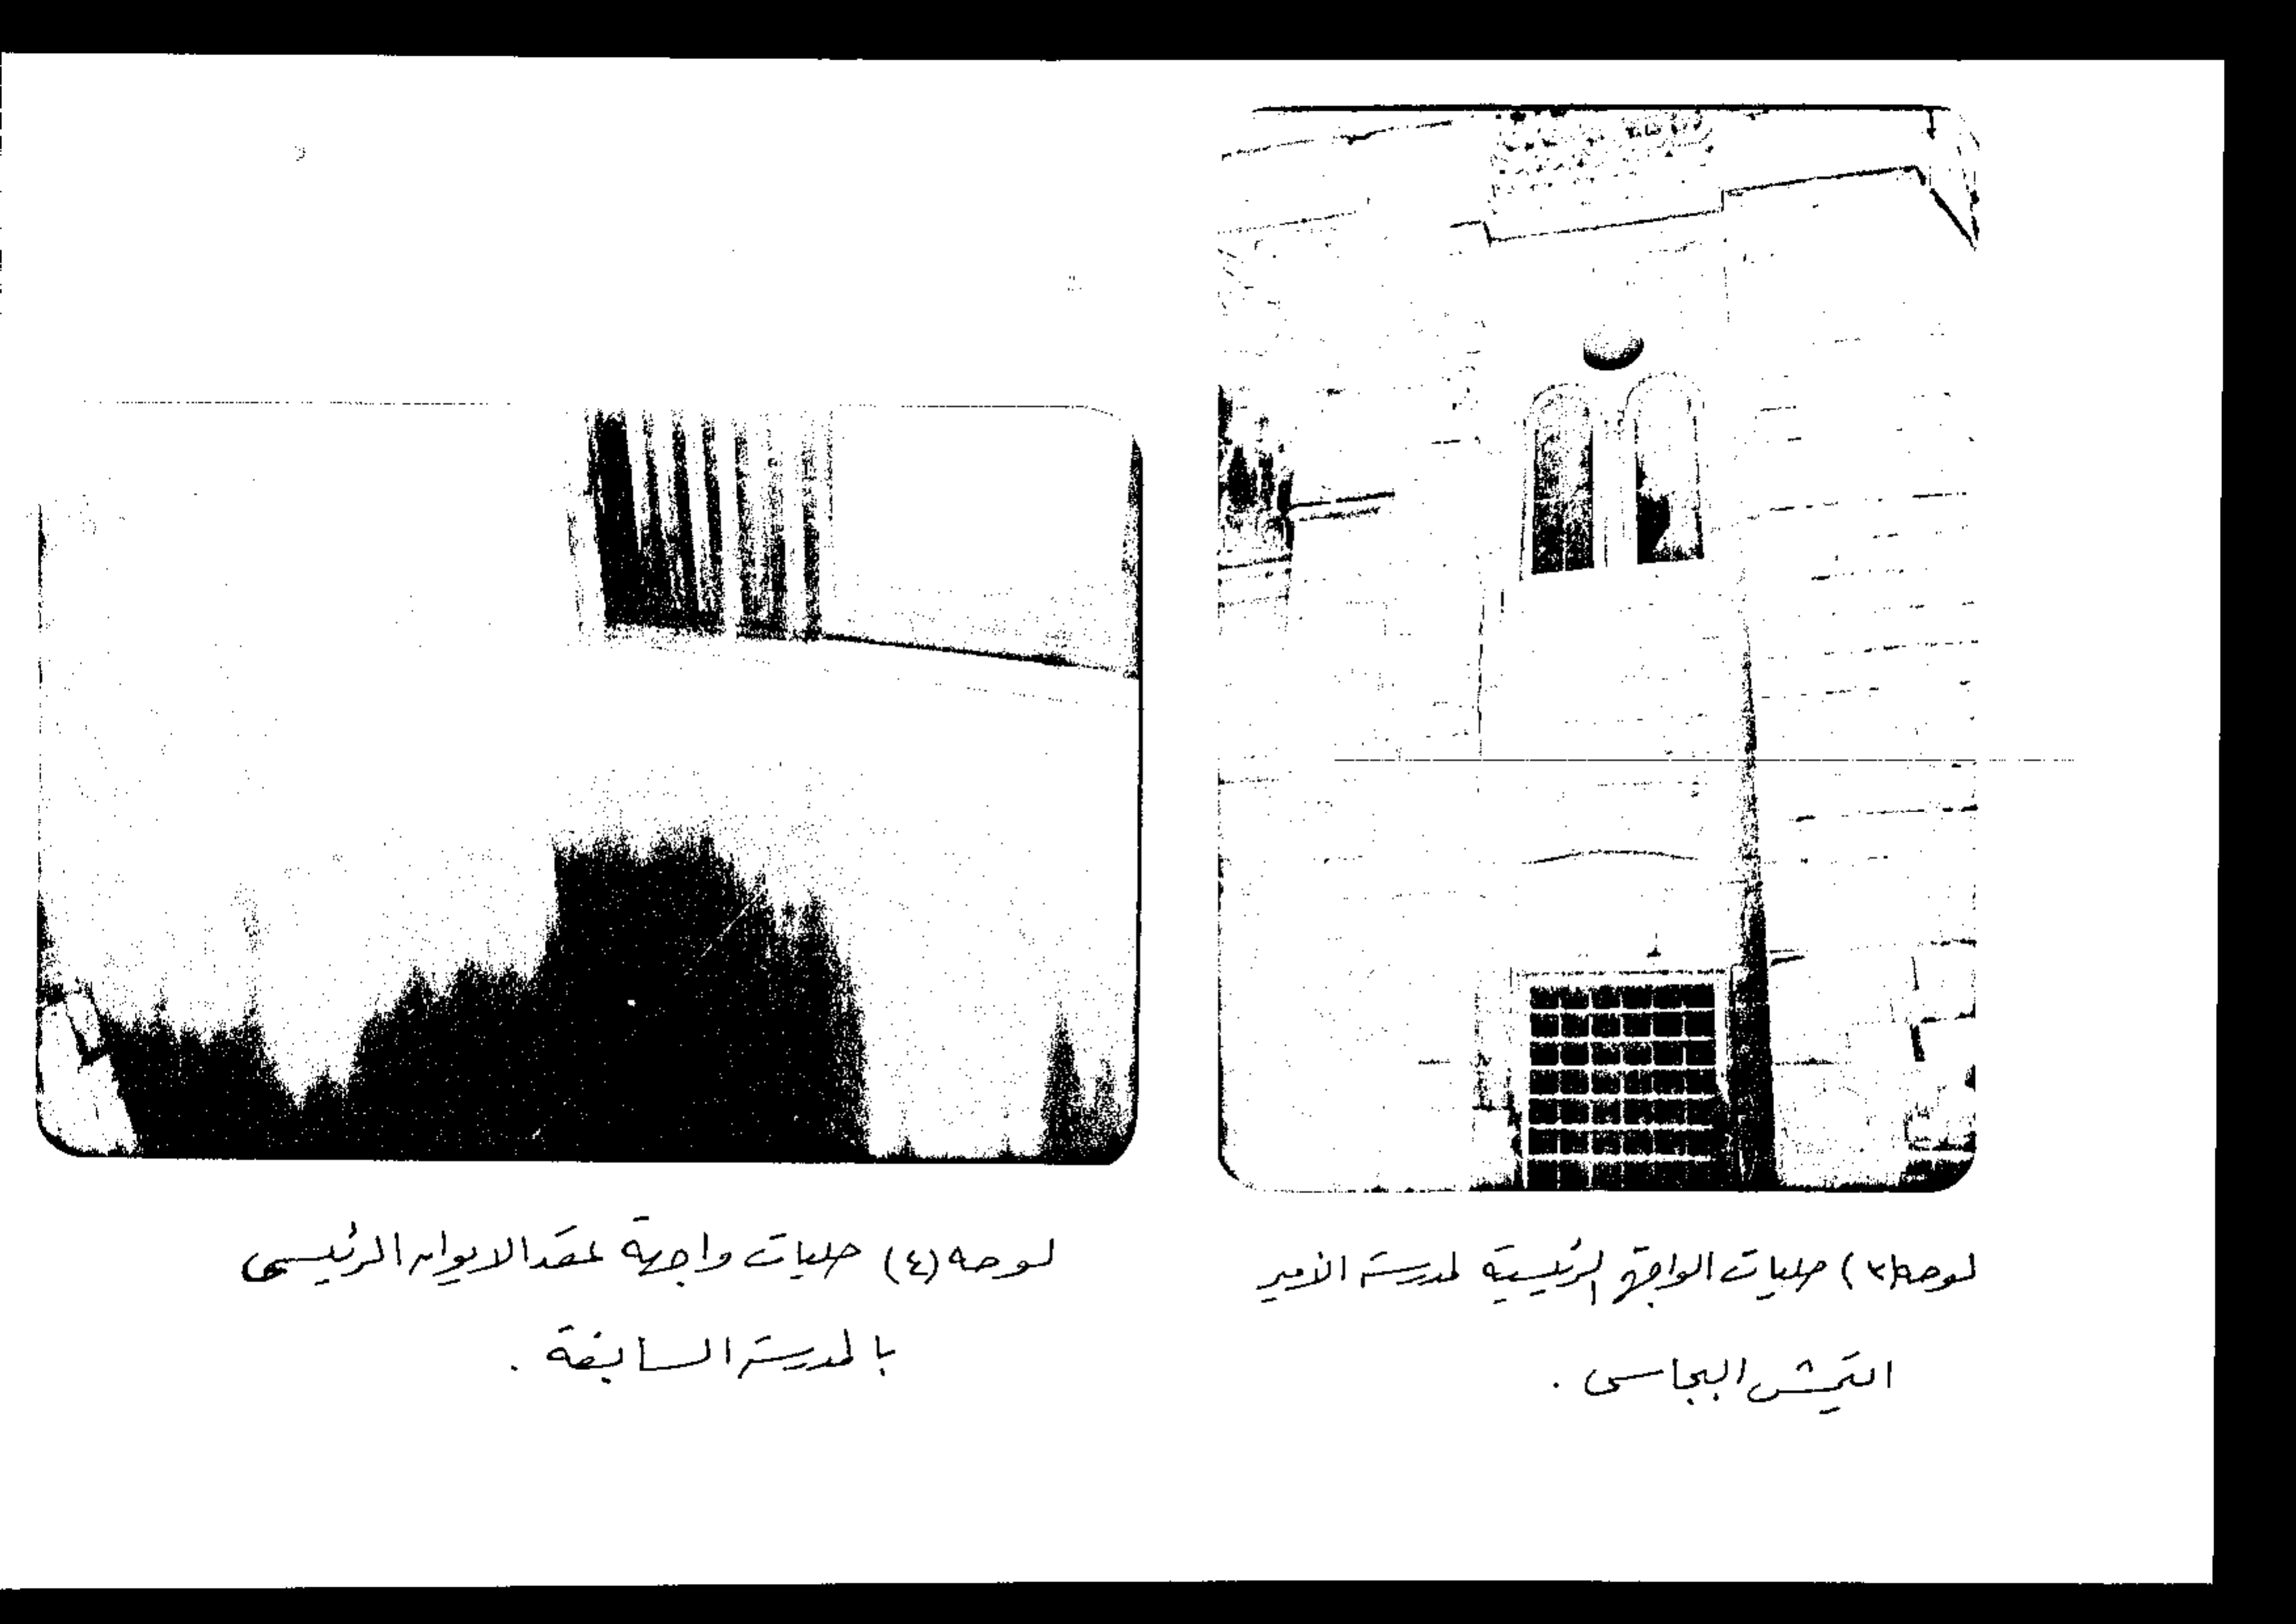 لوحه (٣) حليات الواجهة الرئيسية لمدرسة الأمير
ايتمش البجاسى .
لوحه (٤) حليات واجهة عقد الايوان الرئيسى
بالمدرسة السابقة .